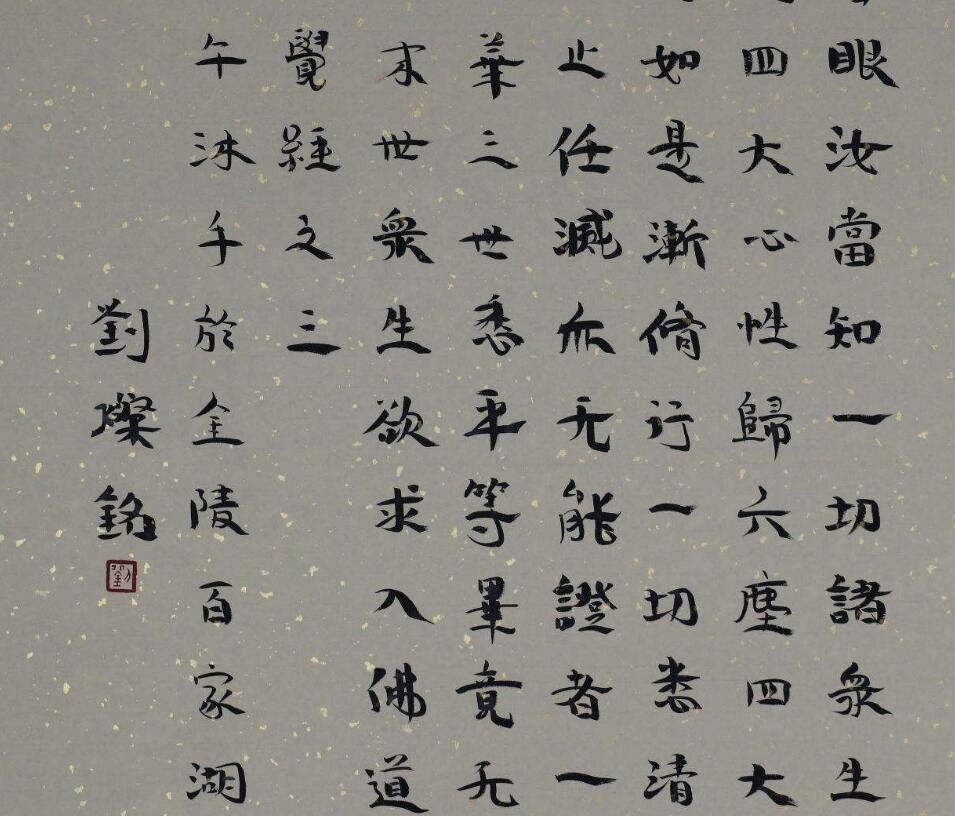 眼汝當知一切諸衆生
四大心性歸六塵四大
如是漸脩行一切悉清
止任滅亦无能證者一
華三世悉平等畢竟无
末世衆生欲求入佛道
覺經之三
午沐手於金陵百家湖
劉燦銘
劉